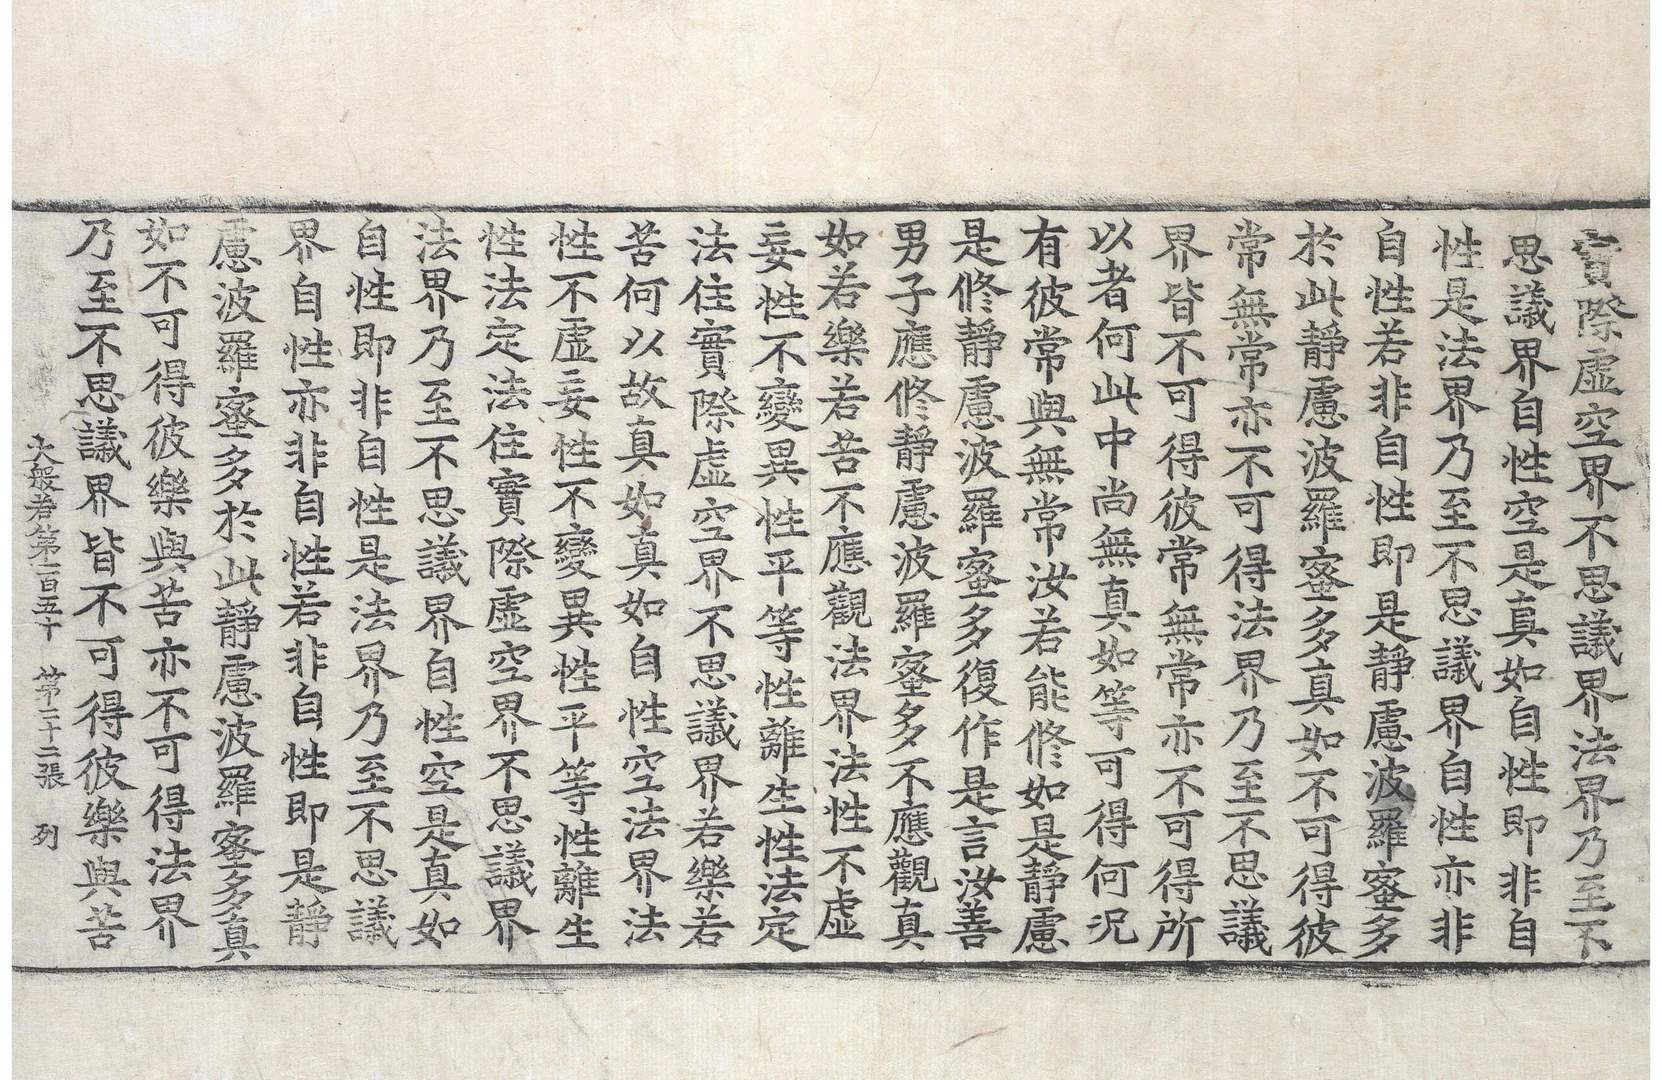 實際虛空界不思議界法界乃至不
思議界自性空是真如自性即非自
性是法界乃至不思議界自性亦非
自性若非自性即是靜慮波羅蜜多
於此靜慮波羅蜜多真如不可得彼
常無常亦不可得法界乃至不思議
界皆不可得彼常無常亦不可得所
以者何此中尚無真如等可得何況
有彼常與無常汝若能修如是靜慮
是修靜慮波羅蜜多復作是言汝善
男子應修靜慮波羅蜜多不應觀真
如若樂若苦不應觀法界法性不虛
妄性不變異性平等性離生性法定
法住實際虛空界不思議界若樂若
苦何以故真如真如自性空法界法
性不虛妄性不變異性平等性離生
性法定法住實際虛空界不思議界
法界乃至不思議界自性空是真如
自性即非自性是法界乃至不思議
界自性亦非自性若非自性即是靜
慮波羅蜜多於此靜慮波羅蜜多真
如不可得彼樂與苦亦不可得法界
乃至不思議界皆不可得彼樂與苦
大般若第一百五十 第二十二張 列